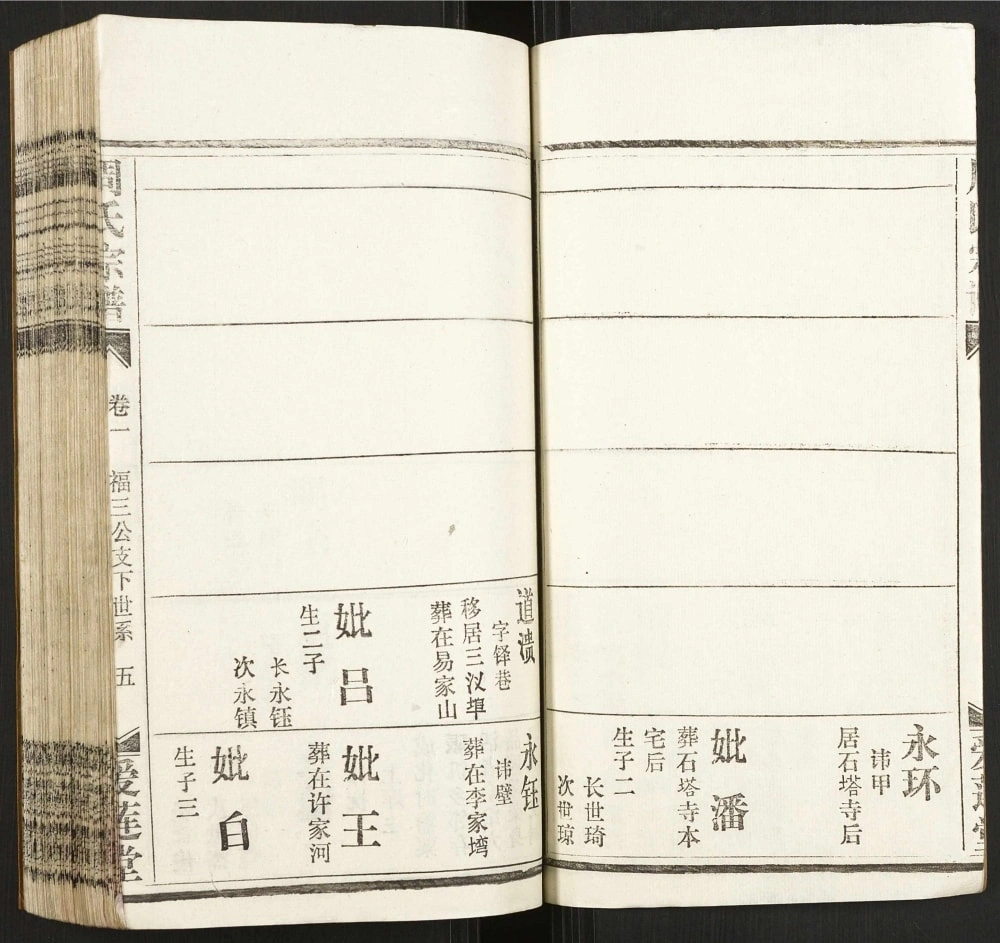 永环
讳甲
居石塔寺后
妣潘
葬石塔寺本
宅后
生子二
长世琦
次世琼
道溃
字铎巷
移居三汊埠
葬在易家山
妣吕
生二子
长永钰
次永镇
永钰
讳壁
葬在李家塆
妣王
葬在许家河
妣白
生子三
周氏宗谱
卷一
福三公支下世系
五
爱莲堂